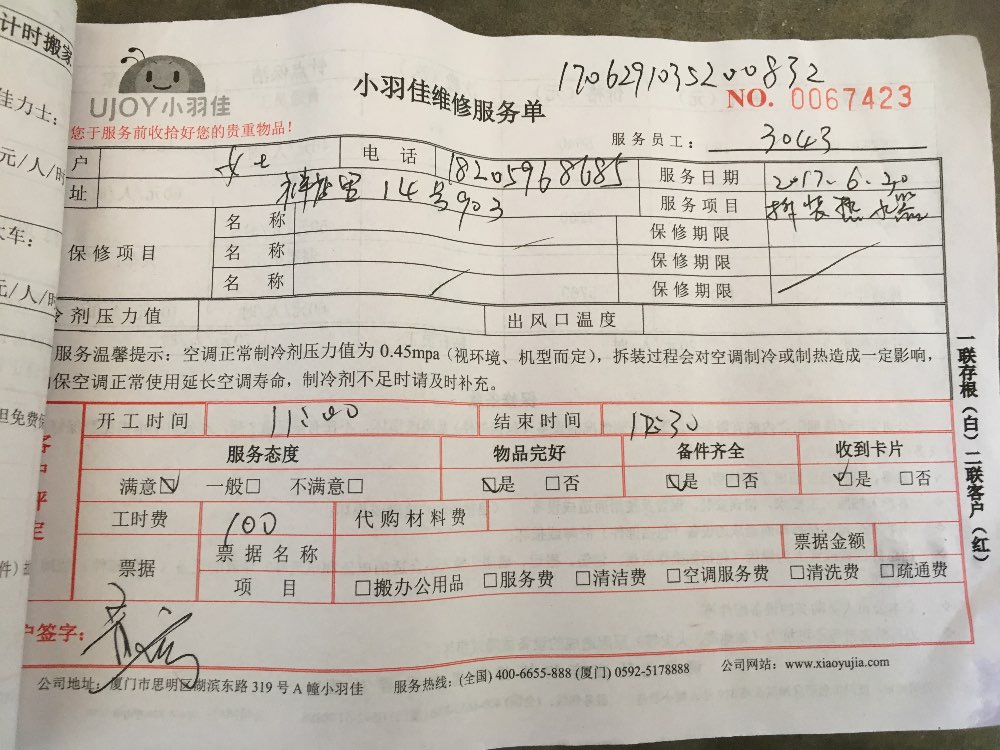 计时搬家
佳力士：
元/人/时
大车：
元/人/时
但免费
件)
UJOY小羽佳
小羽佳维修服务单
170629103520083​2
NO. 0067423
您于服务前收拾好您的贵重物品！
服务员工： 3043
户 女士 电话 18205968685 服务日期 2017.6.30
址 14号903 服务项目 拆装热水器
保修项目 名称 保修期限
名称 保修期限
名称 保修期限
冷剂压力值 出风口温度
服务温馨提示：空调正常制冷剂压力值为 0.45mpa（视环境、机型而定），拆装过程会对空调制冷或制热造成一定影响，
保空调正常使用延长空调寿命，制冷剂不足时请及时补充。
客户评定
开工时间 11:00 结束时间 12:30
服务态度 物品完好 备件齐全 收到卡片
满意☑ 一般□ 不满意□ ☑是 □否 ☑是 □否 ☑是 □否
工时费 100 代购材料费
票据 票据名称 票据金额
项目 □搬办公用品 □服务费 □清洁费 □空调服务费 □清洗费 □疏通费
户签字：
公司地址：厦门市思明区湖滨东路 319 号 A 幢小羽佳 服务热线：(全国) 400-6655-888 (厦门) 0592-5178888 公司网站：www.xiaoyujia.com
一联存根（白）二联客户（红）